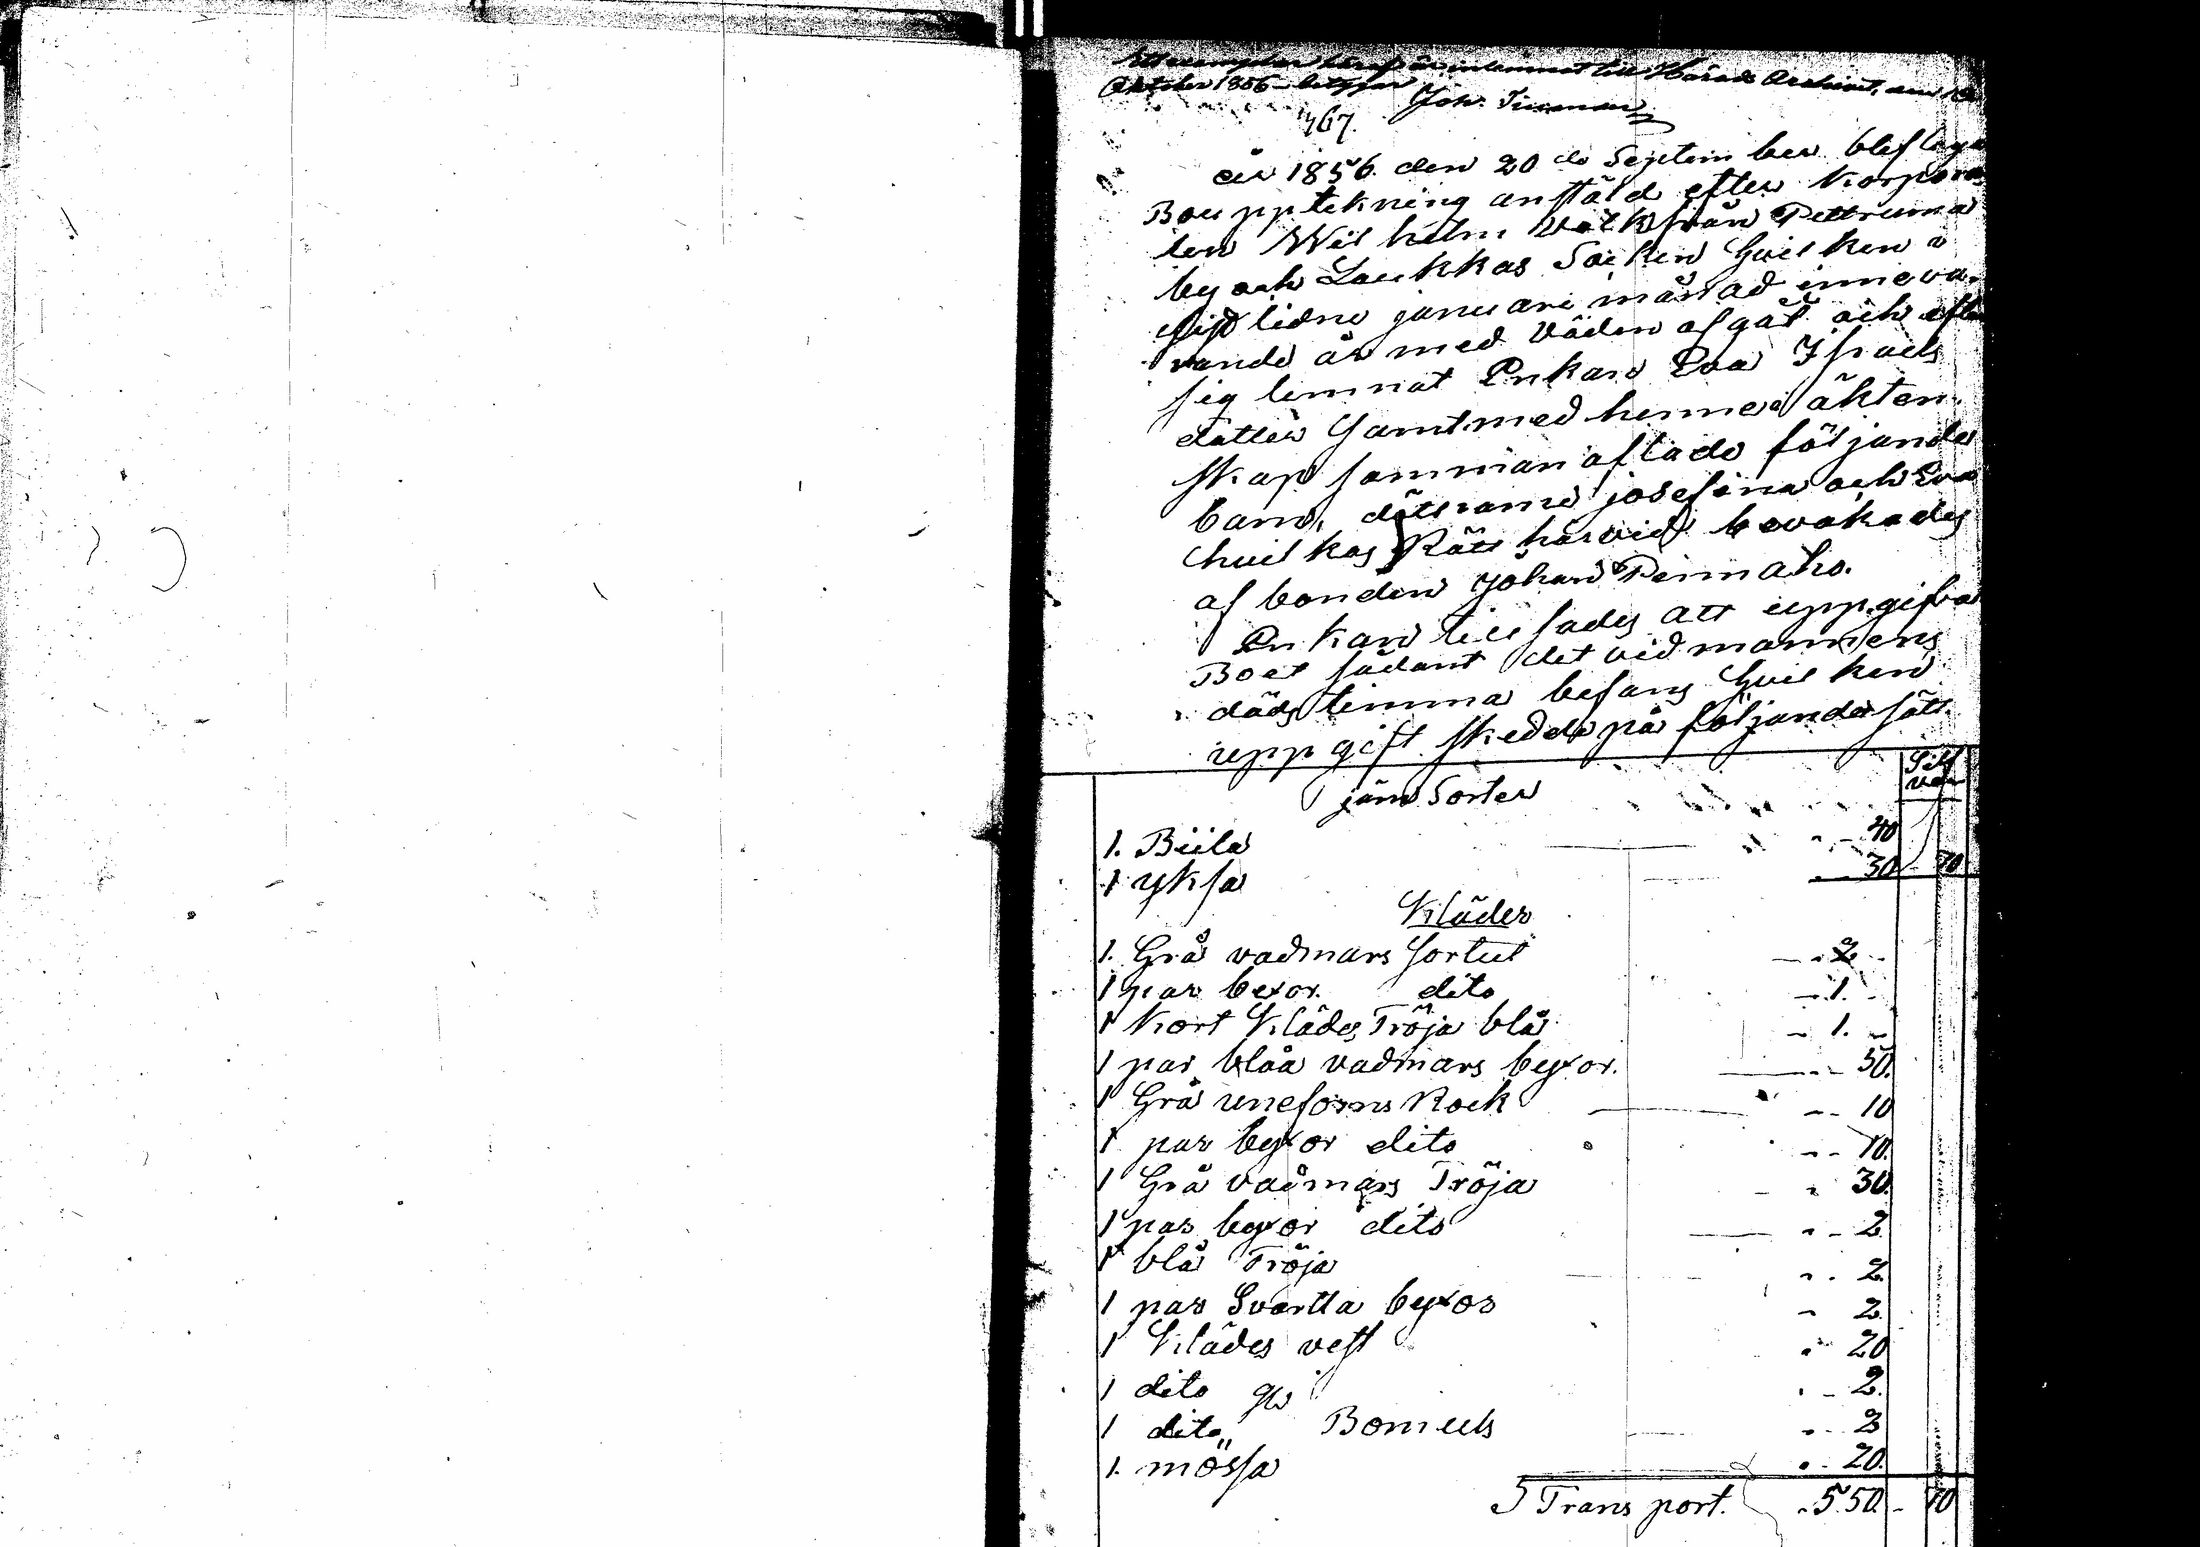 Ett exemplar häraf är inlämnat till Härads Archivet, den
Oktober 1856 betygar
Joh. Tirronen
467.
År 1856. den 20de September blef laga
Bouppteckning anstäld efter Korpora
len Wilhelm Valk från Pettruma
by och Laukkas Socken hvilken
sistlidne januari månad inneva-
rande år med döden afgåt och efter
sig lemnat Enkan Eva Israels
dotter samt med henne i äkten-
skap samman aflade följande
barn, döttrarne josefina och Eva
hvilkas Rätt härvid bevakades
af bonden Johan Pennaho.
Enkan tillsades att uppgifva
Boet sådant det vid mannens
dödstimma befans hvilken
uppgift skedde på följande sätt.
Silf
ver
järn Sorter
1. Biila 40
1 yksa 30 70
Kläder
1. Grå vadmars Sortut 2
1 par bexor. dito 1.
1 Kort Klädes Tröja blå 1.
1 par blåa vadmars byxor. 50.
1 Grå uneforms Rock 10
1 par byxor dito 10.
1 Grå vadmars Tröja 30.
1 par byxor dito 2
1 blå Tröja 2
1 par Svartta byxor 2
1 Klädes vest 20
1 dito 2.
1 dito Bomuls 2
1. mössa 20.
Transport. 5.50. 70